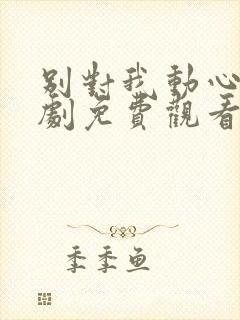 別對我動心
劇免費觀看
季季魚